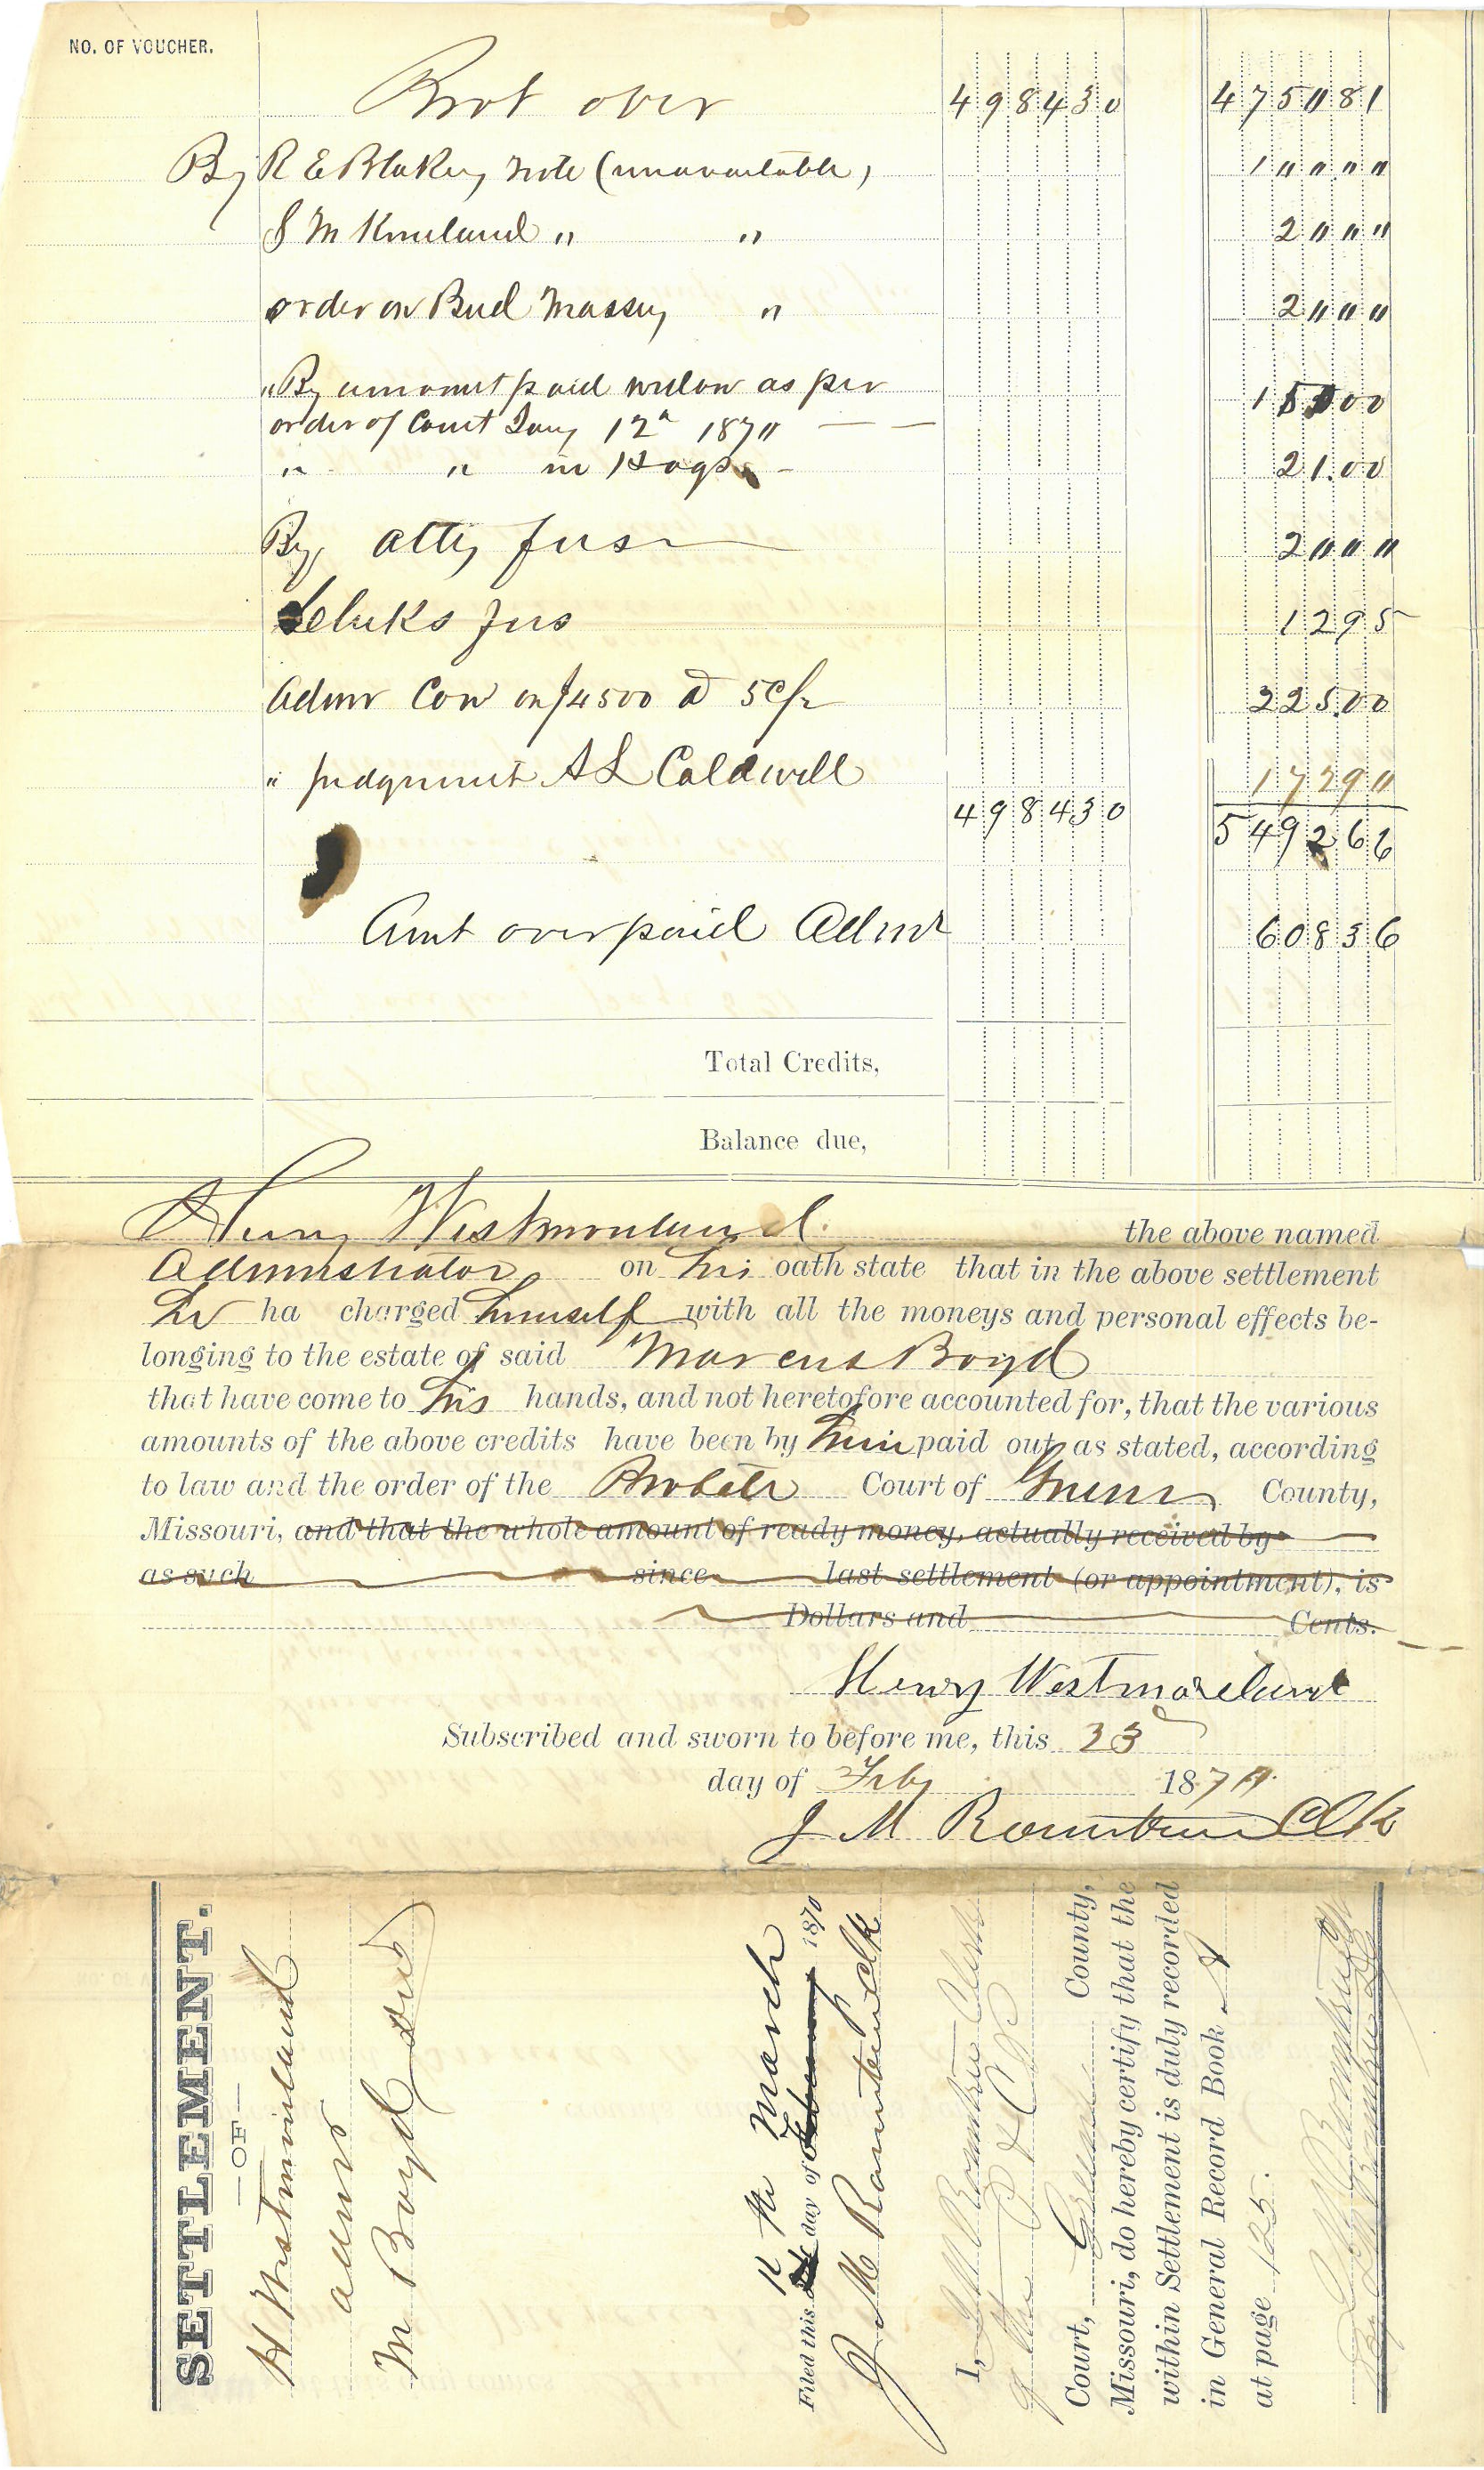 NO. OF VOUCHER.
Brot over 4984 30 475081
By R E Blakey note (unavailable) 1 " " " "
S M Kneeland " " 2 " " "
order on Bud Massey " 2 " " "
" By amount paid widow as per
order of Court Jany 12" 187" — — 15000
" " in Hogs - 21.00
By atty fees 2 " " "
Clerks fees 1295
Admr Com on $4500 @ 5 c/r 225.00
" judgment A L Caldwell 1729"
498430 549266
Amt overpaid Admr 60836
Total Credits,
Balance due,
Henry Westmoreland the above named
Administrator on his oath state that in the above settlement
he ha charged himself with all the moneys and personal effects be-
longing to the estate of said Marcus Boyd
that have come to his hands, and not heretofore accounted for, that the various
amounts of the above credits have been by him paid out as stated, according
to law and the order of the Probate Court of Greene County,
Missouri, and that the whole amount of ready money, actually received by
as such since last settlement (or appointment), is
Dollars and Cents.
Henry Westmoreland
Subscribed and sworn to before me, this 23
day of Feby 187"
J M Rountree Clk
SETTLEMENT.
—OF—
H Westmoreland
admr
M Boyd
March
Filed this day of February 1870
J M Rountree clk
I, J M Rountree Clerk
of the
Court, Greene County,
Missouri, do hereby certify that the
within Settlement is duly recorded
in General Record Book
at page 125.